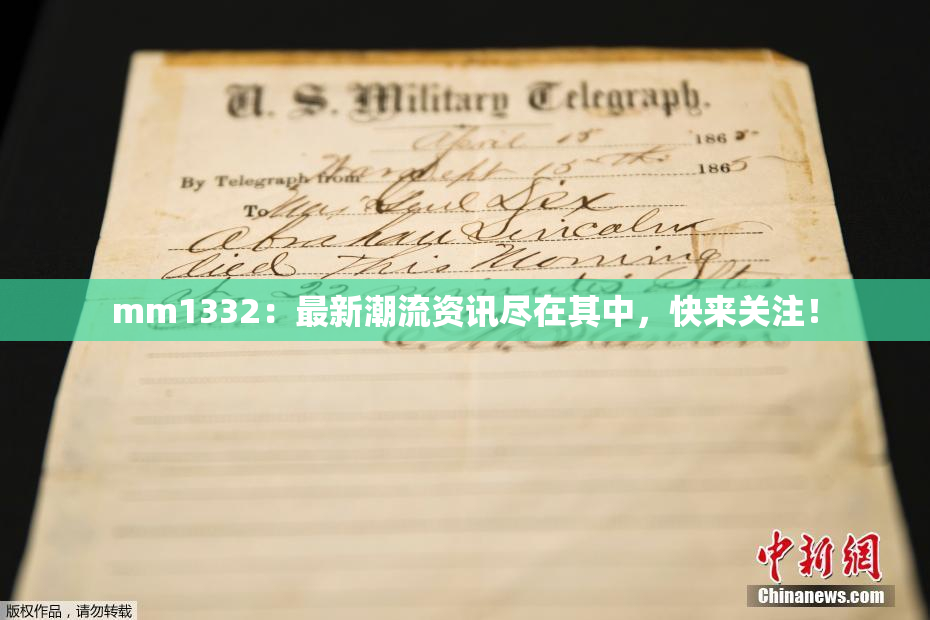 U. S. Military Telegraph.
April 15 1865
By Telegraph from War Dept 15th 1865
To Maj Genl Dix
Abraham Lincoln
died This Morning
at 22 minutes after
mm1332：最新潮流资讯尽在其中，快来关注！
E. M. Stanton
中新网
Chinanews.com
版权作品，请勿转载